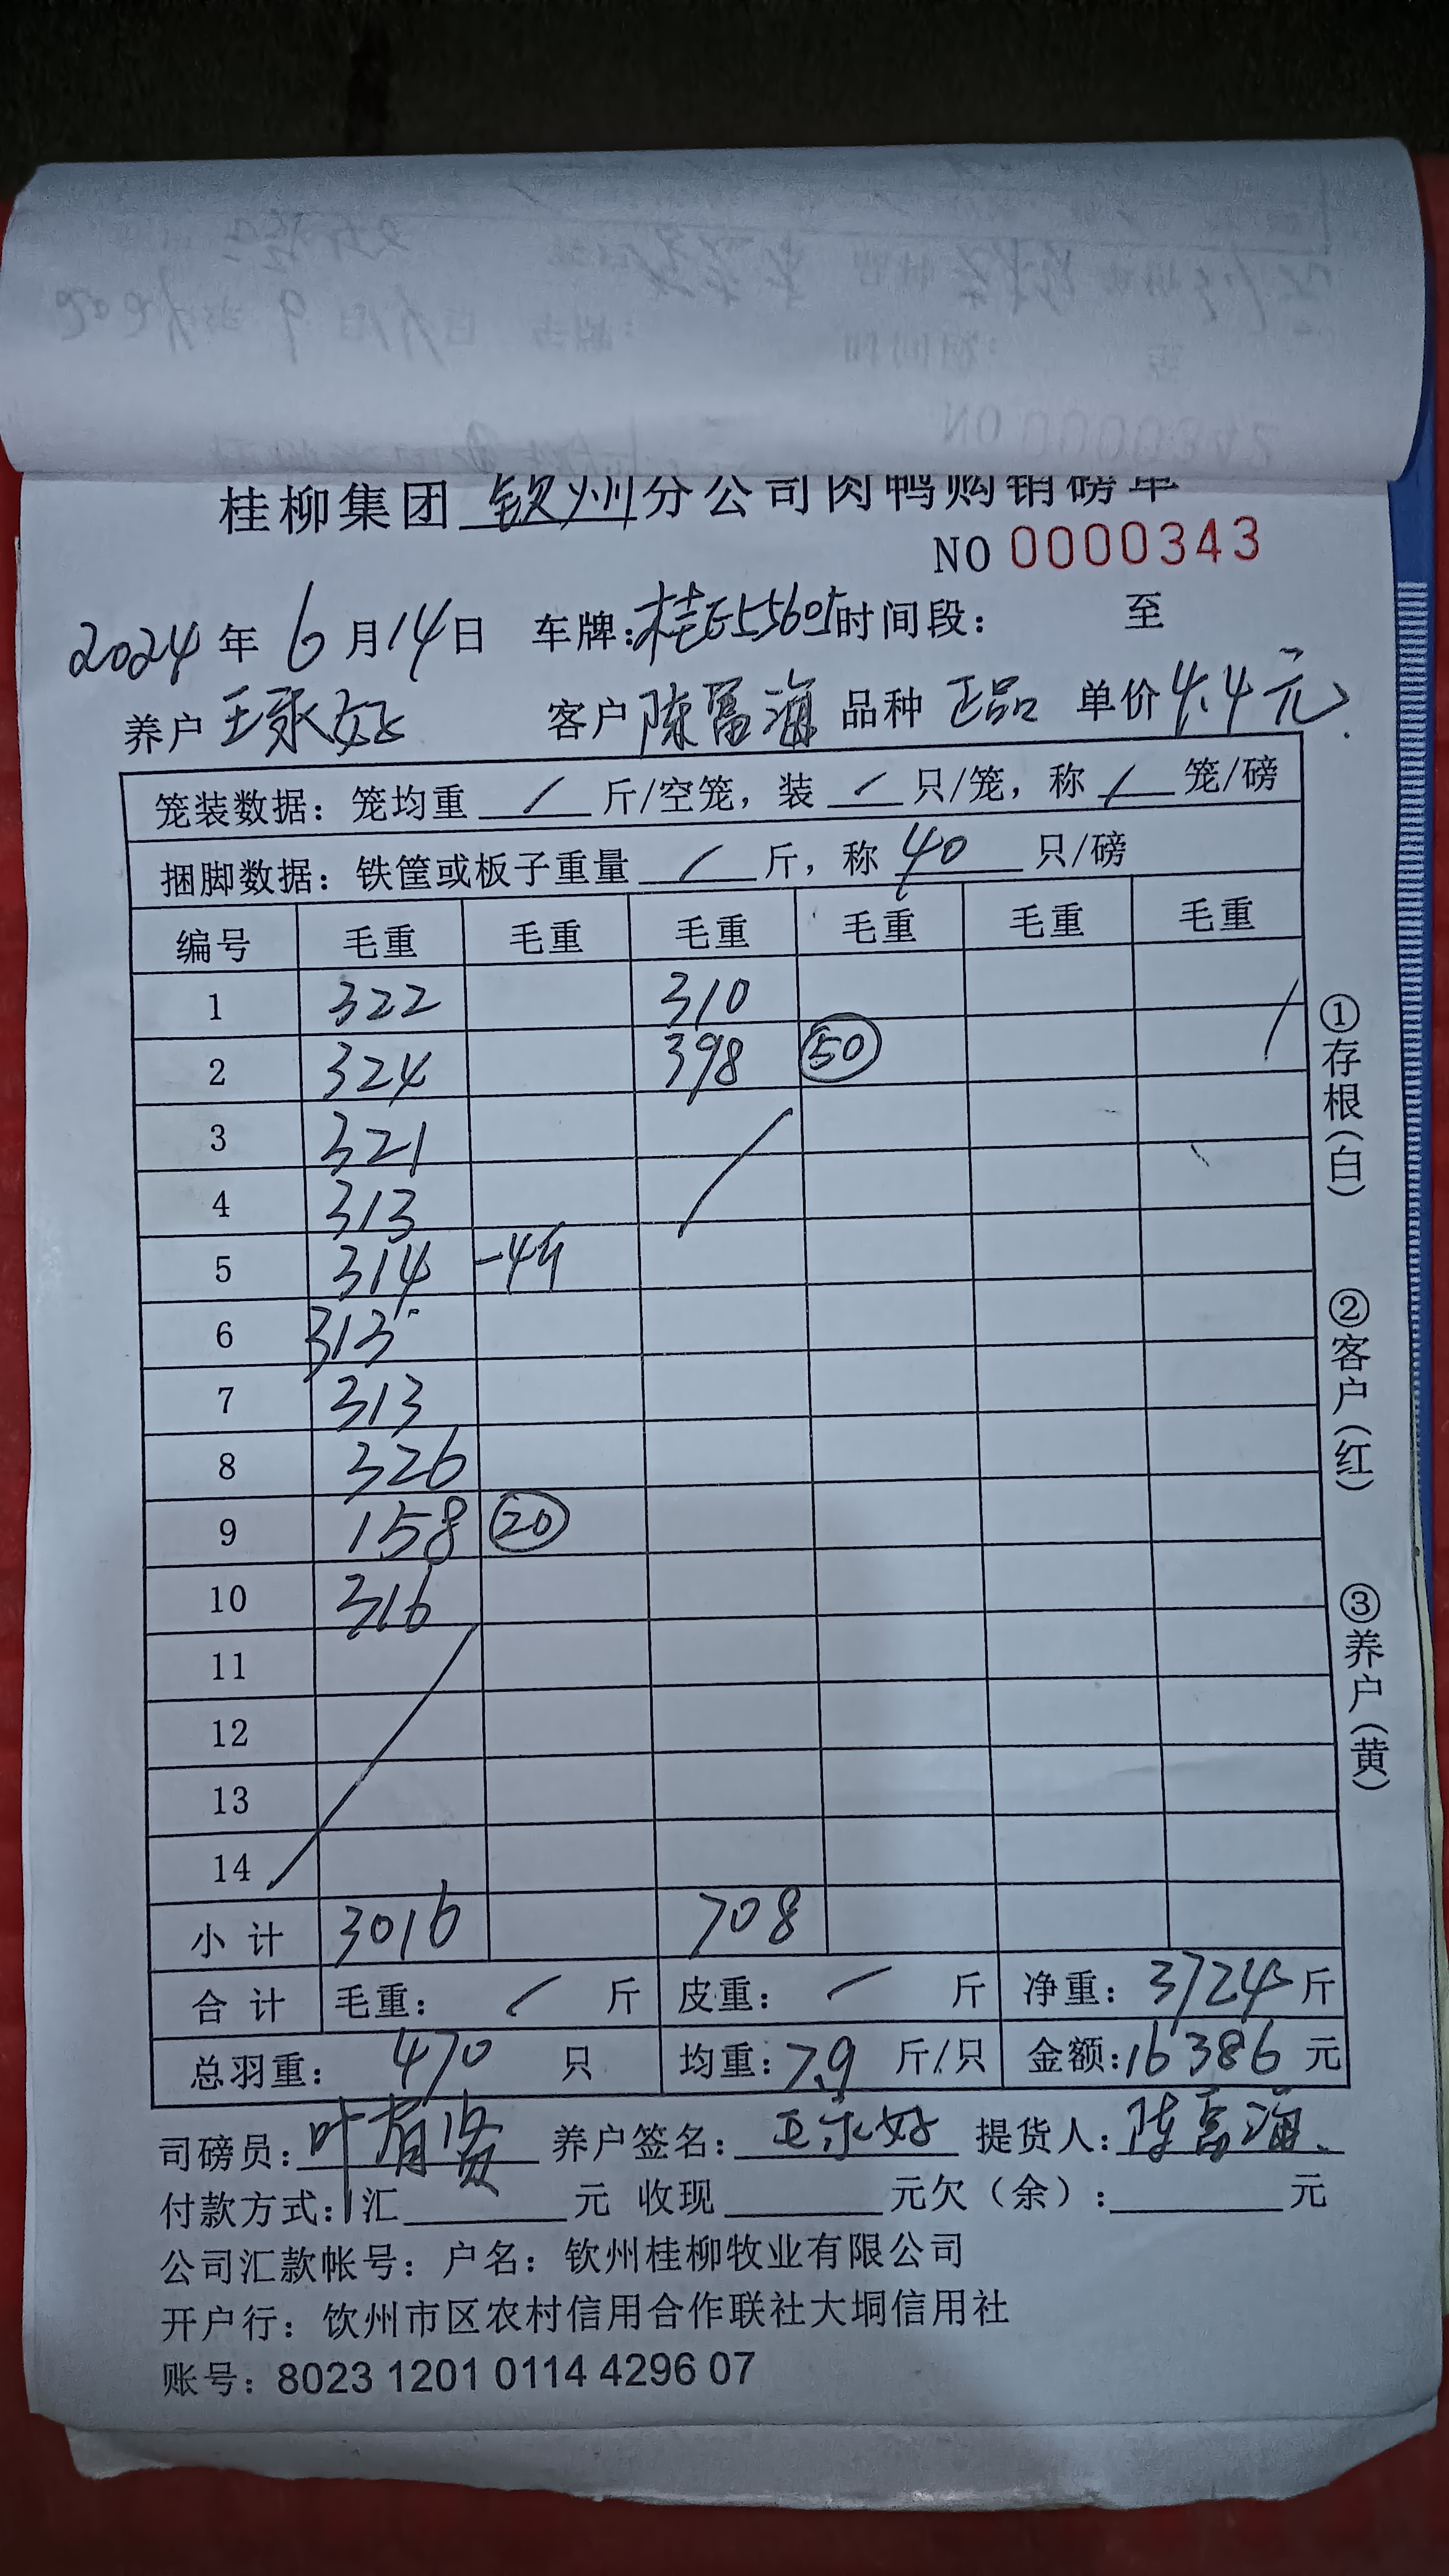 桂柳集团钦州分公司肉鸭购销磅单
NO 0000343
2024年6月14日 车牌:桂 时间段: 至
养户王永好 客户陈富海 品种 正品 单价4.4元
笼装数据: 笼均重 / 斤/空笼, 装 / 只/笼, 称 / 笼/磅
捆脚数据: 铁筐或板子重量 / 斤, 称40只/磅
编号 毛重 毛重 毛重 毛重 毛重 毛重
1 322 310
2 324 398 50
3 321
4 313
5 314 -4斤
6 313
7 313
8 326
9 158 20
10 316
11
12
13
14
小计 3016 708
合计 毛重: / 斤 皮重: / 斤 净重: 3724斤
总羽重: 470 只 均重:7.9 斤/只 金额:16386元
司磅员:叶有贤 养户签名:王永好 提货人:陈富海
付款方式: 汇 元 收现 元欠(余): 元
公司汇款帐号: 户名: 钦州桂柳牧业有限公司
开户行: 钦州市区农村信用合作联社大垌信用社
账号: 8023 1201 0114 4296 07
①存根(白)
②客户(红)
③养户(黄)